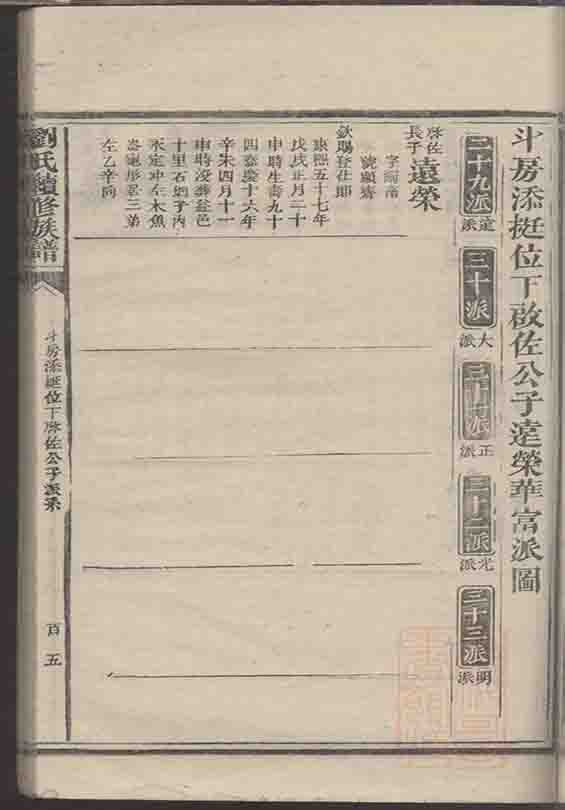 斗房添挺位下啟佐公子遠榮華富派圖
二十九派
遠派
三十派
大派
三十一派
正派
三十二派
光派
三十三派
明派
啟佐
長子
遠榮
欽賜登仕郎
康熙五十七年
戊戌正月二十
申時生壽九十
四嘉慶十六年
辛未四月十一
申時沒葬益邑
十里石
子內
木魚
三弟
左乙辛向
劉氏續修族譜
斗房添挺位下啟佐公子派系
百五